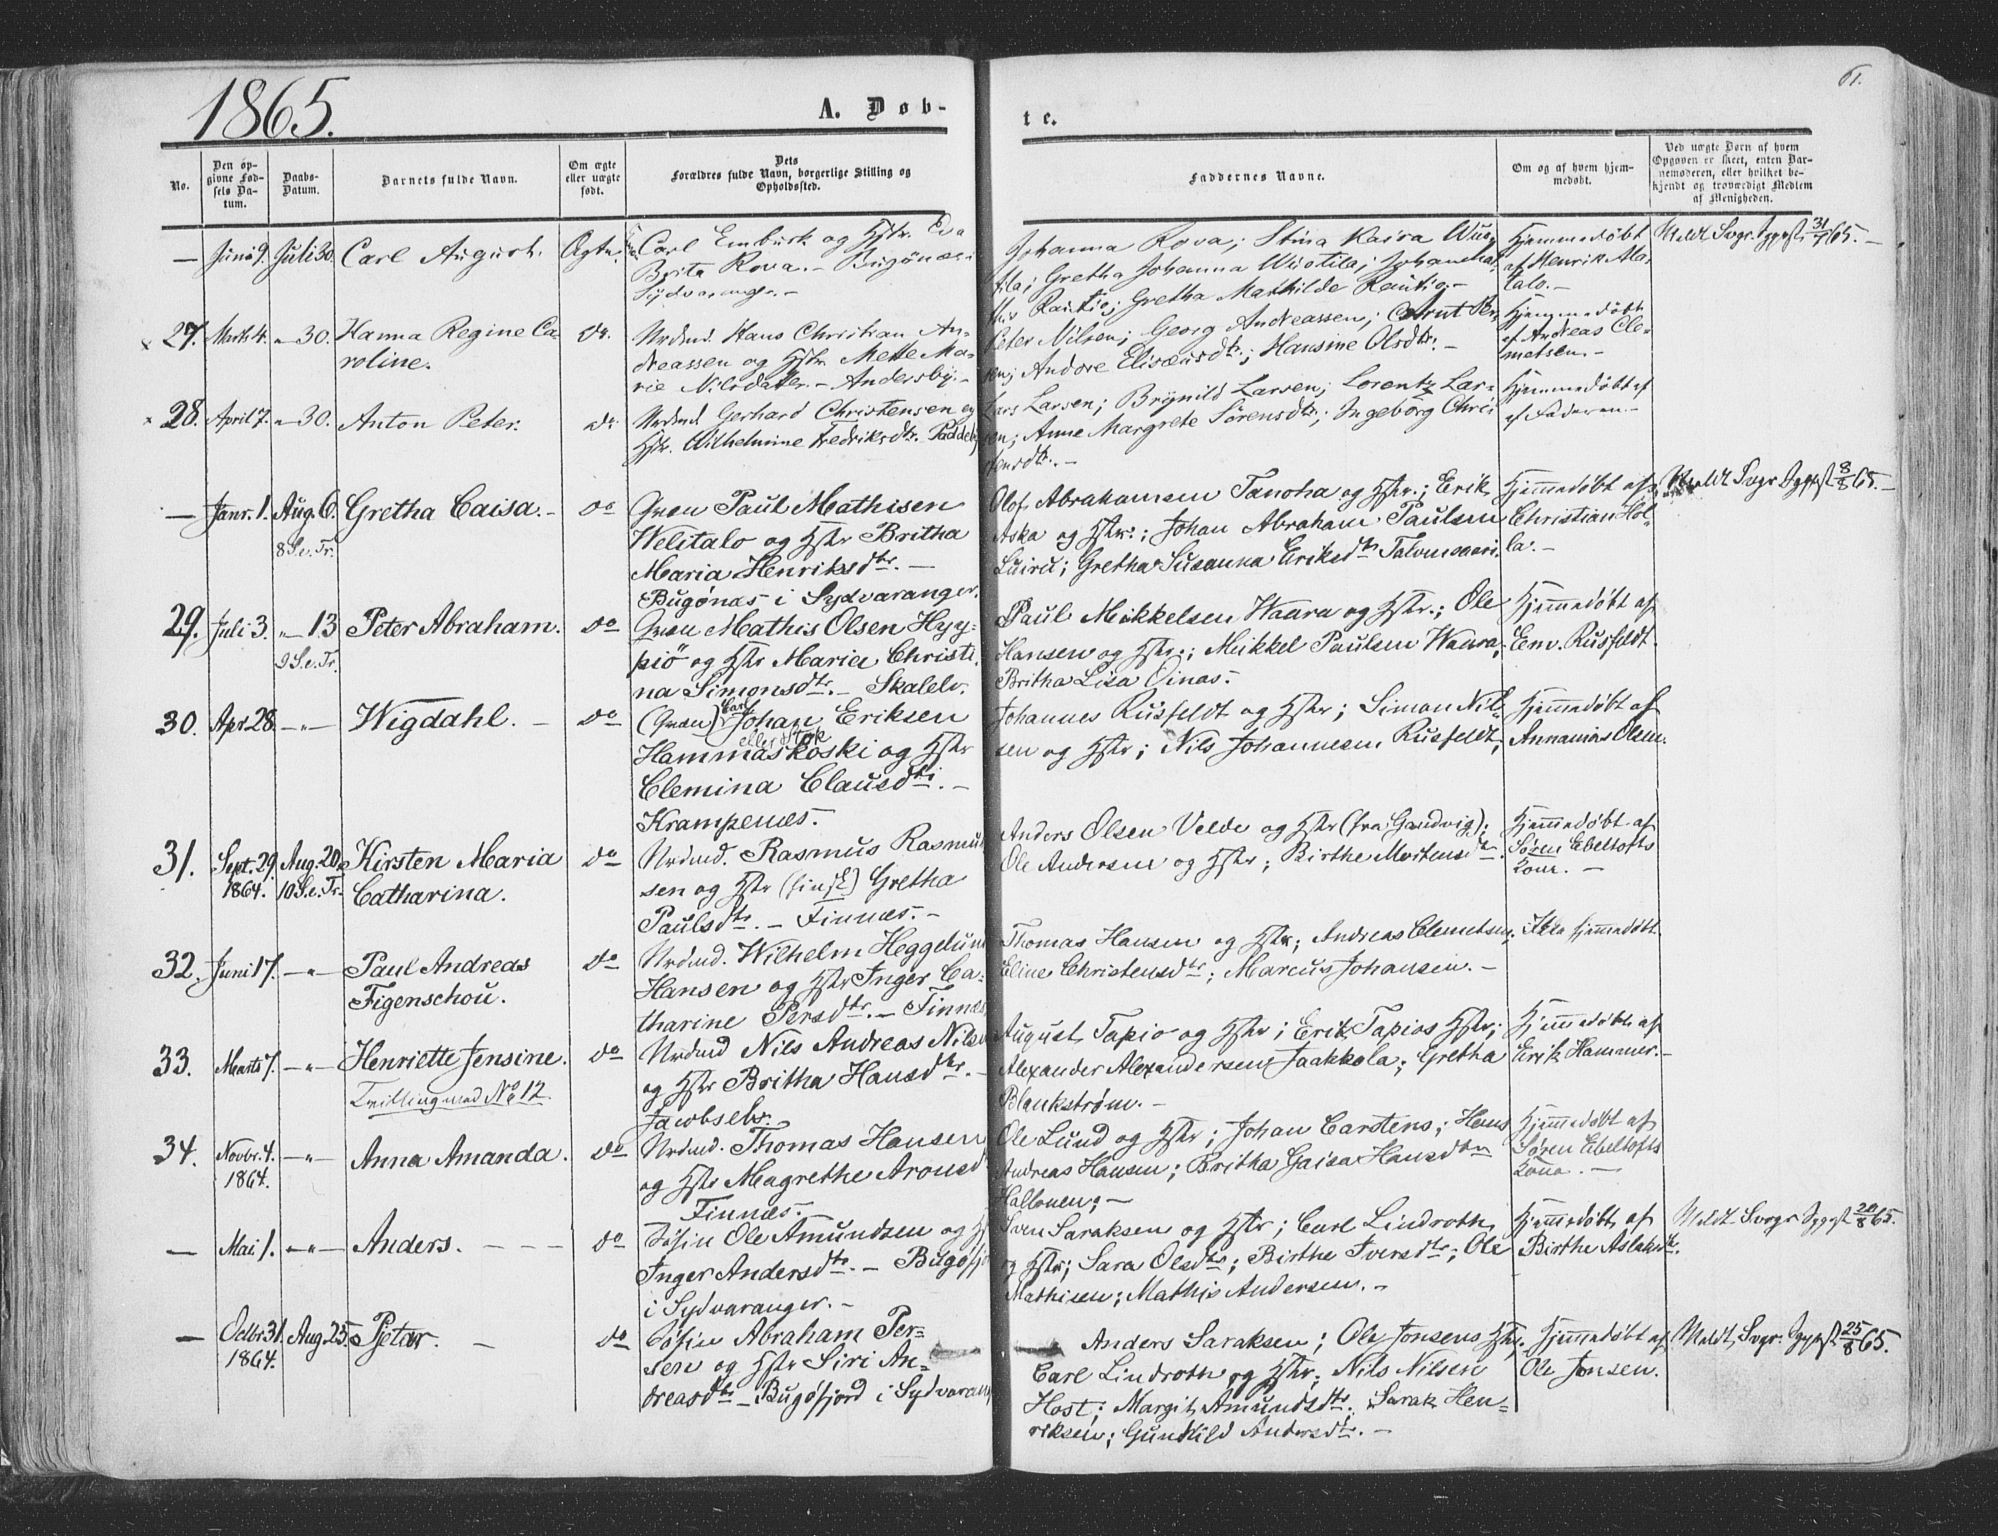 1865.
A. Døb-
te.
61.
No.
Den op-
givne Fød-
sels Da-
tum.
Daabs-
Datum.
Barnets fulde Navn.
Om ægte
eller uægte
født.
Dets
Forældres fulde Navn, borgerlige Stilling og
Opholdssted.
Faddernes Navne.
Om og af hvem hjem-
medøbt.
Ved uægte Børn af hvem
Opgaven er skeet, enten Bar-
nemoderen, eller hvilket be-
kjendt og troværdigt Medlem
af Menigheden.
— Juni 9. Juli 30. Carl August. Ægte.
Carl Emburk og Hstr. Eva
Brita Rova. - Bugønæs i
Sydvaranger. -
Johanna Rova; Stina Kaisa Wuo-
tila; Gretha Johanna Wuotila; Johan Mat-
this Rautio; Gretha Mathilde Rautio. -
Hjemmedøbt
af Henrik Ala-
talo. -
Meldt Svgr. Sggpst 31/7 65. -
× 27. Marts 4. " 30. Hanna Regine Ca-
roline.
do.
Nrdmd. Hans Christian An-
dreassen og Hstr. Mette Ma-
rie Nilsdatter. - Andersby. -
Peter Nilsen; Georg Andreassen; Cornut Per-
sen; Andore Elisæusdtr.; Hansine Olsdtr. -
Hjemmedøbt
af Andreas Cle-
metsen. -
× 28. April 7. " 30. Anton Peter. do.
Nrdmd. Gerhard Christensen og
Hstr. Wilhelmine Fredriksdtr. Paddeby
Lars Larsen; Brynild Larsen; Lorentz Lar-
sen; Anne Margrete Sørensdtr.; Ingeborg Chris-
tensdtr. -
Hjemmedøbt af
af Faderen. -
— Janr. 1. Aug. 6. Gretha Caisa. - do
8 S. e. Tr.
Qvæn Paul Mathisen
Welitalo og Hstr Britha
Maria Henriksdtr. -
Bugønæs i Sydvaranger.
Olof Abrahamsen Tanoha og Hstr.; Erik
Aska og Hstr.; Johan Abraham Paulsen
Luiru; Gretha Susanna Eriksdtr Talvensaari
Hjemmedøbt af
Christian Hol-
la. -
Meldt Svgr Sggpst 8/8 65. -
29. Juli 3. " 13 Peter Abraham. do
9 S. e. Tr.
Qvæn Mathis Olsen Hyy-
piö og Hstr Maria Christi-
na Simonsdtr. - Skalelv.
Paul Mikkelsen Waara og Hstr.; Ole
Hansen og Hstr.; Mikkel Paulsen Waara;
Britha Lisa Oinas.
Hjemmedøbt af
Em. Rusfeldt.
30. Apr. 28. - " - Wigdahl. - do
(Qvæn) Carl Johan Eriksen
eller Stok
Hammaskoski og Hstr
Clemina Clausdtr. -
Krampenæs.
Johannes Rusfeldt og Hstr; Simon Nil-
sen og Hstr; Nils Johannesen Rusfeldt;
Hjemmedøbt af
Annanias Olsen.
31. Sept. 29. Aug. 20. Kirsten Maria do
1864. 10 S. e. Tr. Catharina.
Nrdmd. Rasmus Rasmus-
sen og Hstr (finsk) Gretha
Paulsdtr. - Finnæs. -
Anders Olsen Velde og Hstr (fra Gandvig);
Ole Andersen og Hstr; Birthe Mortensdtr.
Hjemmedøbt af
Søren Ebeltofts
Kone. -
32. Juni 17. - " - Paul Andreas do
Figenschou.
Nrdmd. Wilhelm Heggelund
Hansen og Hstr Inger Ca-
tharine Persdtr. - Finnæs.
Thomas Hansen og Hstr; Andreas Clemetsen;
Eline Christensdtr; Marcus Johansen. -
Ikke hjemmedøbt.
33. Marts 7. - " - Henriette Jensine. do
Tvilling med No 12.
Nrdmd Nils Andreas Nilsen
og Hstr Britha Hansdtr. -
Jacobselv.
August Tapio og Hstr; Erik Tapios Hstr;
Alexander Alexandersen Jaakkola; Gretha
Blankstrøm. -
Hjemmedøbt af
Erik Hammer. -
34. Novbr. 4. - " - Anna Amanda. do
1864.
Nrdmd. Thomas Hansen
og Hstr Magrethe Aronsdtr
Finnæs. -
Ole Lund og Hstr; Johan Carstens; Hans
Andreas Hansen; Britha Gaisa Hansdtr
Hallonen; -
Hjemmedøbt af
Søren Ebeltofts
Kone. -
— Mai 1. - " - Anders. - - - do
Søfin Ole Amundsen og Hstr
Inger Andersdtr. - Bugøfj.
i Sydvaranger. -
Sven Saraksen og Hstr; Carl Lindroth
og Hstr; Sara Olsdtr; Birthe Iversdtr; Ole
Mathisen; Mathis Andersen. -
Hjemmedøbt af
Birthe Aslaksdtr.
Meldt Svgr Sggpst 20/8 65.
— Octbr 31. Aug. 25. Pjetar. - do
1864.
Søfin Abraham Per-
sen og Hstr Siri An-
dreasdtr - Bugøfjord i Sydvarang.
Anders Saraksen; Ole Jonsens Hstr;
Carl Lindroth og Hstr; Nils Nilsen
Hast; Margit Amundsdtr; Sarak Hen-
riksen; Gunhild Andersdtr. -
Hjemmedøbt af
Ole Jonsen.
Meldt Svgr. Sggpst 25/8 65.